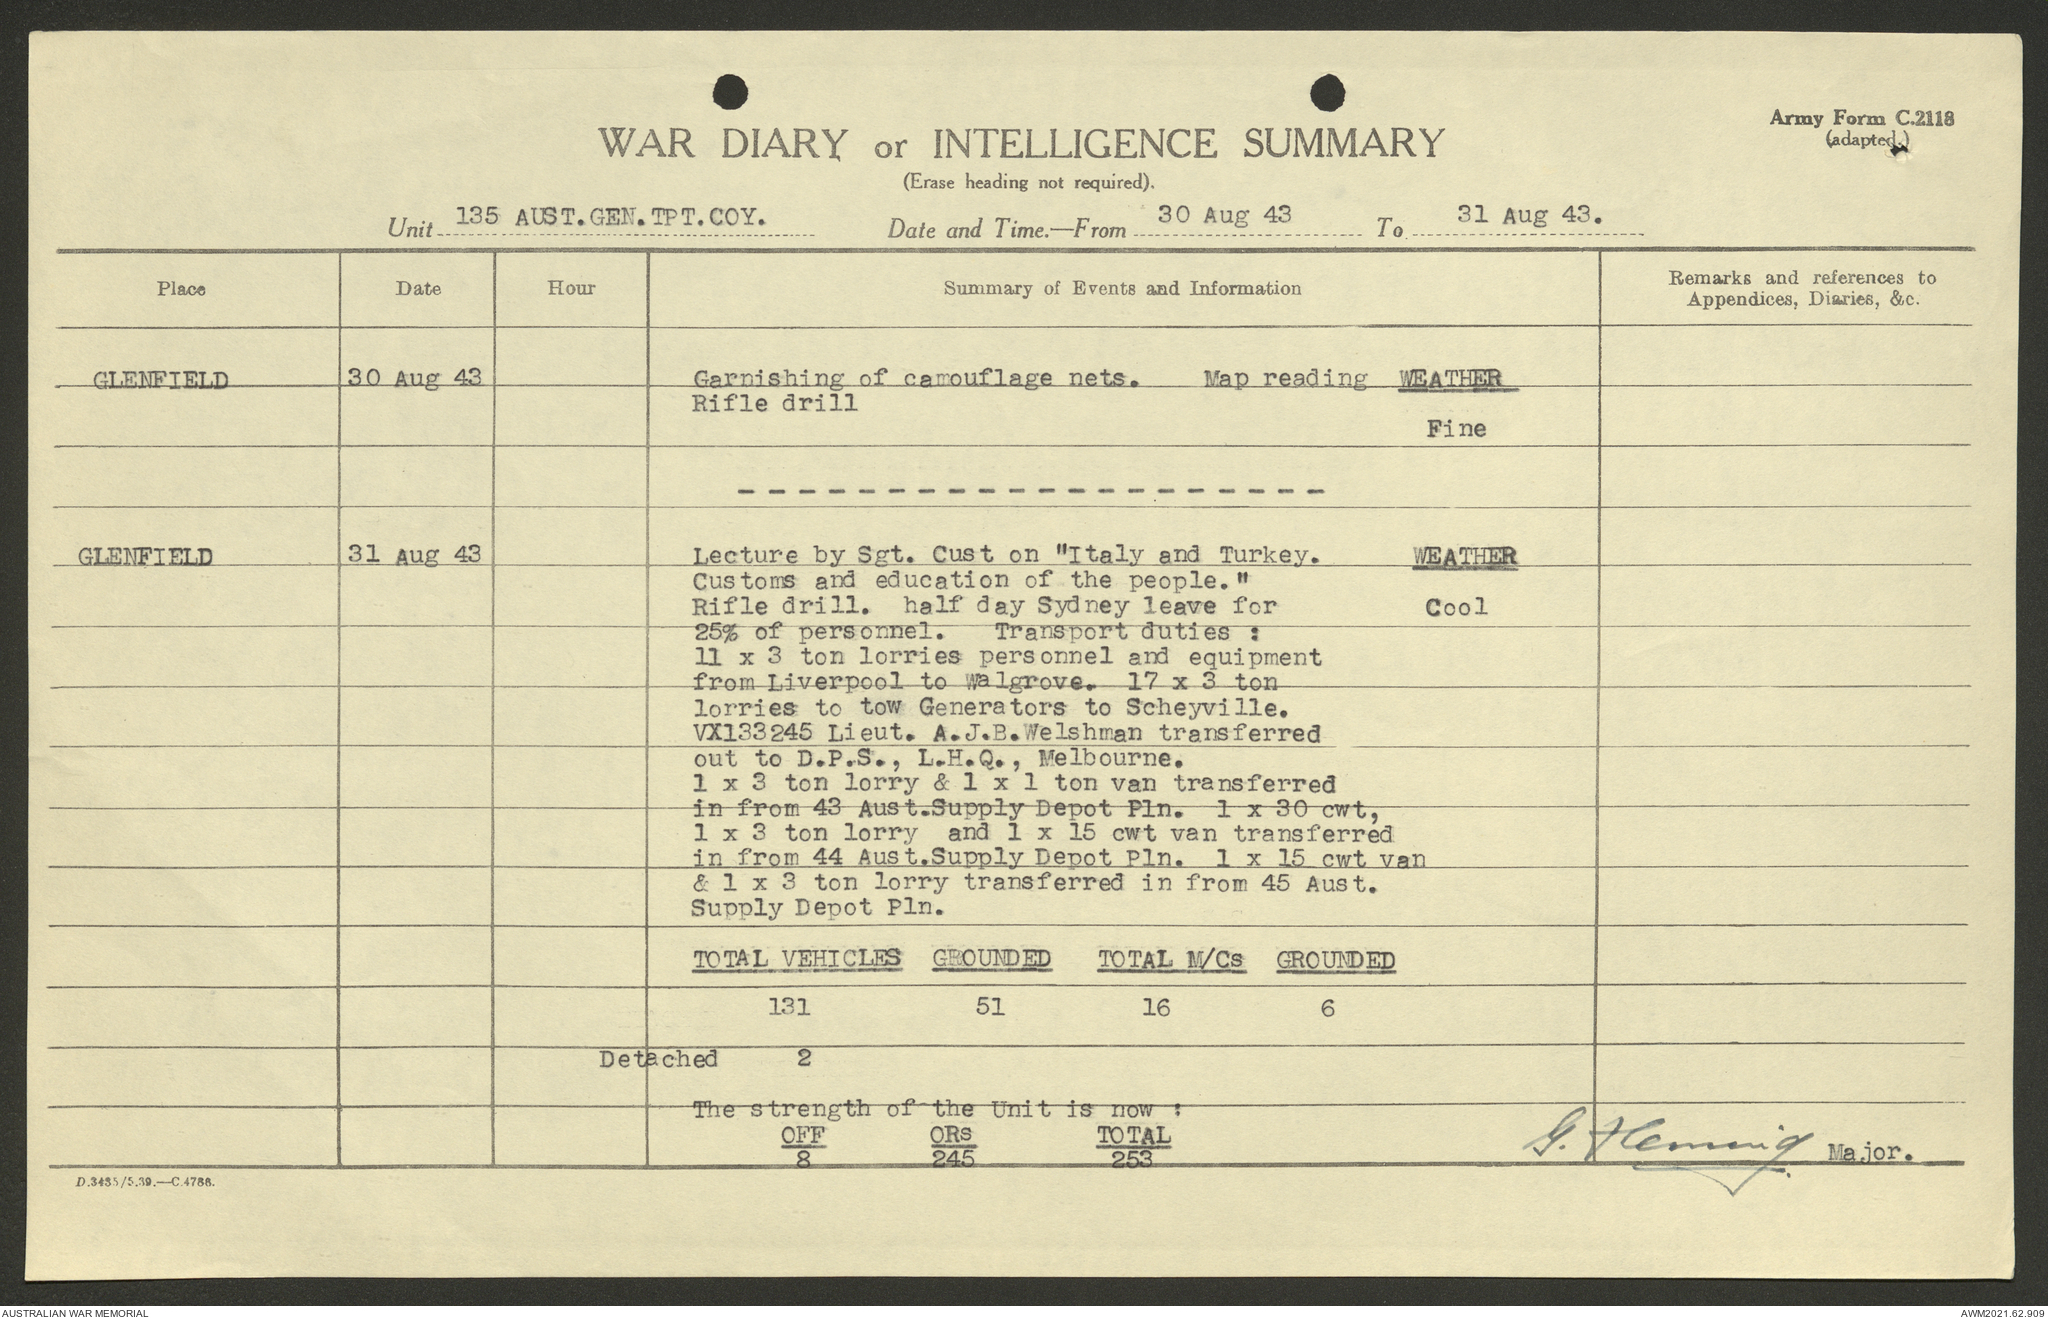 Army Form C.2118
(adapted.)
WAR DIARY or INTELLIGENCE SUMMARY
(Erase heading not required).
Unit 135 AUST.GEN.TPT.COY. Date and Time.—From 30 Aug 43 To 31 Aug 43.
Place Date Hour Summary of Events and Information Remarks and references to
Appendices, Diaries, &c.
GLENFIELD 30 Aug 43 Garnishing of camouflage nets. Map reading WEATHER
Rifle drill
Fine
GLENFIELD 31 Aug 43 Lecture by Sgt. Cust on "Italy and Turkey. WEATHER
Customs and education of the people."
Rifle drill. half day Sydney leave for Cool
25% of personnel. Transport duties :
11 x 3 ton lorries personnel and equipment
from Liverpool to Walgrove. 17 x 3 ton
lorries to tow Generators to Scheyville.
VX133245 Lieut. A.J.B.Welshman transferred
out to D.P.S., L.H.Q., Melbourne.
1 x 3 ton lorry & 1 x 1 ton van transferred
in from 43 Aust.Supply Depot Pln. 1 x 30 cwt,
1 x 3 ton lorry and 1 x 15 cwt van transferred
in from 44 Aust.Supply Depot Pln. 1 x 15 cwt van
& 1 x 3 ton lorry transferred in from 45 Aust.
Supply Depot Pln.
TOTAL VEHICLES GROUNDED TOTAL M/Cs GROUNDED
131 51 16 6
Detached 2
The strength of the Unit is now :
OFF ORs TOTAL
8 245 253
G. Fleming Major.
D.3485/5.39.—C.4788.
AUSTRALIAN WAR MEMORIAL
AWM2021.62.909